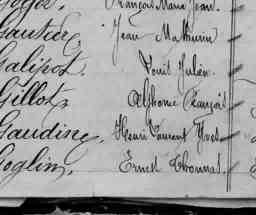 François Marie Jean.
Gautier, Jean Mathurin
Galipot. Louis Julien
Gillot. Alphonse François
Gauding Henri Laurent Yves
Goglin. Ernest